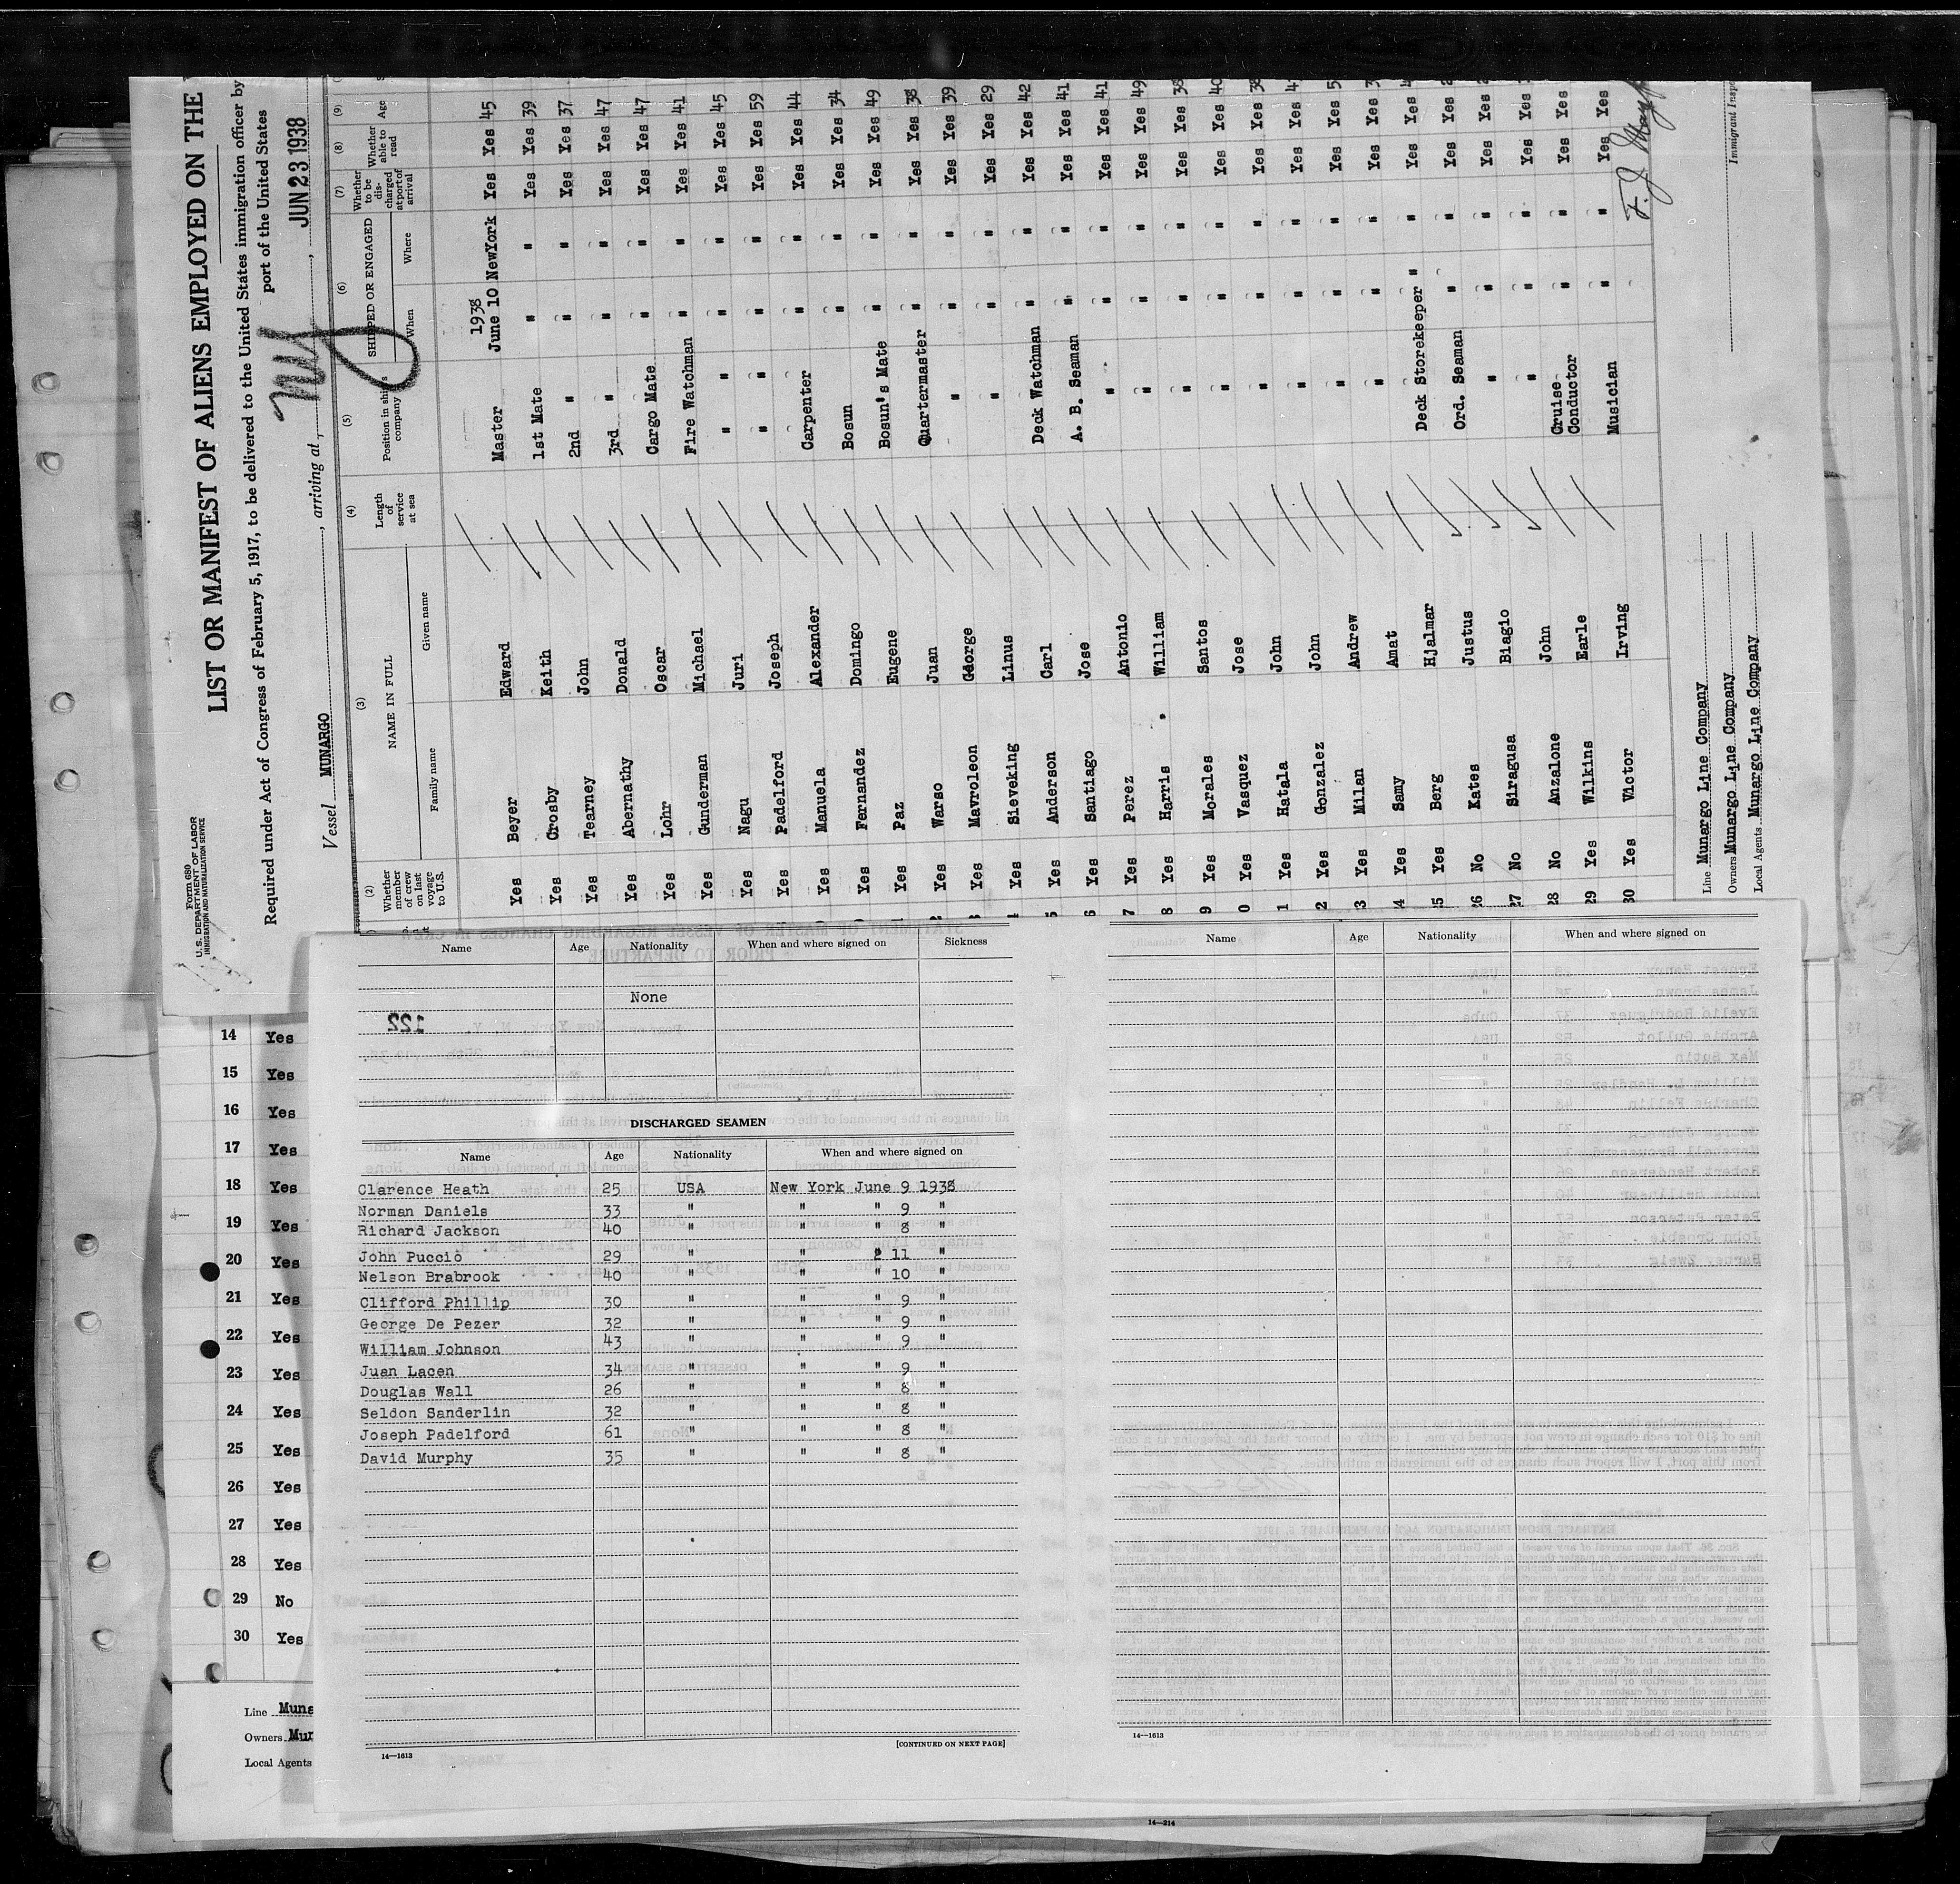 Form 680
U. S. DEPARTMENT OF LABOR
IMMIGRATION AND NATURALIZATION SERVICE
LIST OR MANIFEST OF ALIENS EMPLOYED ON THE
Required under Act of Congress of February 5, 1917, to be delivered to the United States immigration officer by
port of the United States
Vessel MUNARGO, arriving at, JUN 23 1938,
(2) (3) (4) (5) (6) (7) (8) (9)
Whether member of crew on last voyage to U.S. NAME IN FULL Length of service at sea Position in ship's company SHIPPED OR ENGAGED Whether to be discharged at port of arrival Whether able to read Age
Family name Given name When Where
1938
Yes Beyer Edward Master June 10 NewYork Yes Yes 45
Yes Crosby Keith 1st Mate " " Yes Yes 39
Yes Tearney John 2nd " " " Yes Yes 37
Yes Abernathy Donald 3rd " " " Yes Yes 47
Yes Lohr Oscar Cargo Mate " " Yes Yes 47
Yes Gunderman Michael Fire Watchman " " Yes Yes 41
Yes Nagu Juri " " " " Yes Yes 45
Yes Padelford Joseph " " " " Yes Yes 59
Yes Manuela Alexander Carpenter " " Yes Yes 44
Yes Fernandez Domingo Bosun " " Yes Yes 34
Yes Paz Eugene Bosun's Mate " " Yes Yes 49
Yes Warso Juan Quartermaster " " Yes Yes 38
Yes Mavroleon George " " " Yes Yes 39
Yes Sieveking Linus " " " Yes Yes 29
Yes Anderson Carl Deck Watchman " " Yes Yes 42
Yes Santiago Jose A. B. Seaman " " Yes Yes 41
7 Yes Perez Antonio " " " Yes Yes 41
8 Yes Harris William " " " Yes Yes 49
9 Yes Morales Santos " " " Yes Yes 38
0 Yes Vasquez Jose " " " Yes Yes 40
1 Yes Hatala John " " " Yes Yes 38
2 Yes Gonzalez John " " " Yes Yes 4
3 Yes Milan Andrew " " " Yes Yes 5
4 Yes Samy Amat " " " Yes Yes 3
5 Yes Berg Hjalmar Deck Storekeeper " " Yes Yes 4
26 No Kates Justus Ord. Seaman " " Yes Yes 2
27 No Siragusa Biagio " " " Yes Yes
28 No Anzalone John " " " Yes Yes
29 Yes Wilkins Earle Cruise Conductor " " Yes Yes
30 Yes Victor Irving Musician " " Yes Yes
Line Munargo Line Company
Owners Munargo Line Company
Local Agents Munargo Line Company
Immigrant Inspe
Name Age Nationality When and where signed on Sickness
None
DISCHARGED SEAMEN
Name Age Nationality When and where signed on
Clarence Heath 25 USA New York June 9 1938
Norman Daniels 33 " " " 9 "
Richard Jackson 40 " " " 8 "
John Puccio 29 " " " 11 "
Nelson Brabrook 40 " " " 10 "
Clifford Phillip 30 " " " 9 "
George De Pezer 32 " " " 9 "
William Johnson 43 " " " 9 "
Juan Lacen 34 " " " 9 "
Douglas Wall 26 " " " 8 "
Seldon Sanderlin 32 " " " 8 "
Joseph Padelford 61 " " " 8 "
David Murphy 35 " " " 8 "
[CONTINUED ON NEXT PAGE]
14—1613
Name Age Nationality When and where signed on
14—1613
14 Yes
15 Yes
16 Yes
17 Yes
18 Yes
19 Yes
20 Yes
21 Yes
22 Yes
23 Yes
24 Yes
25 Yes
26 Yes
27 Yes
28 Yes
29 No
30 Yes
Line Muna
Owners Mun
Local Agents
14—214